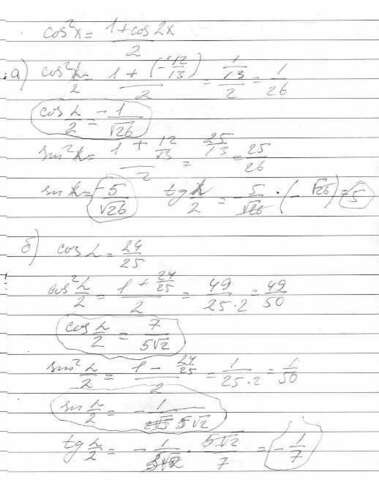 cos²x = (1+cos2x)/2
а) cos²α/2 = (1+(-12/13))/2 = (1/13)/2 = 1/26
cos α/2 = -1/√26
sin²α = (1+12/13)/2 = (25/13)/2 = 25/26
sin α = 5/√26 tg α/2 = 5/√26 · (-√26) = 5
б) cos α = 24/25
cos²α/2 = (1+24/25)/2 = 49/(25·2) = 49/50
cos α/2 = 7/(5√2)
sin²α/2 = (1-24/25)/2 = 1/(25·2) = 1/50
sin α/2 = -1/(5√2)
tg α/2 = -1/(5√2) · 5√2/7 = -1/7